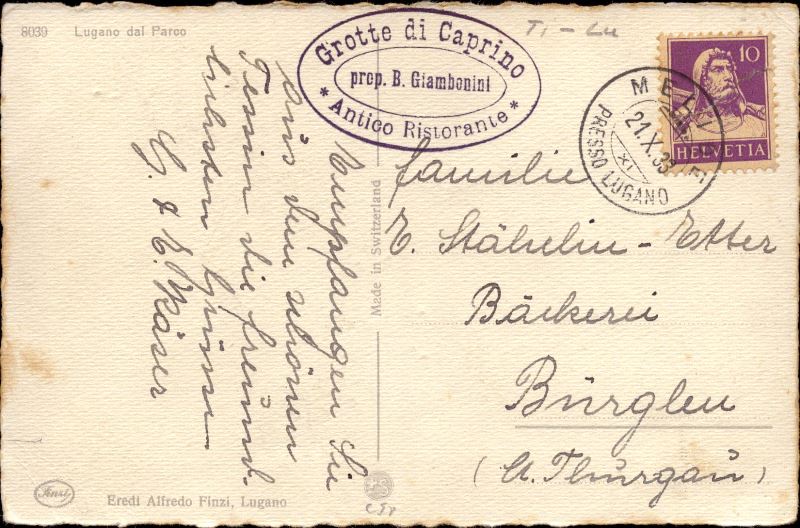 8039 Lugano dal Parco
Grotte di Caprino
prop. B. Giambonini
* Antico Ristorante *
Ti - Lu
10
HELVETIA
21.X.33
XI
PRESSO LUGANO
Empfangen Sie
aus dem schönen
Tessin die freund-
lichsten Grüsse
E. Käser
Made in Switzerland
Familie
E. Stähelin-Etter
Bäckerei
Bürglen
(Kt. Thurgau)
Finzi
Eredi Alfredo Finzi, Lugano